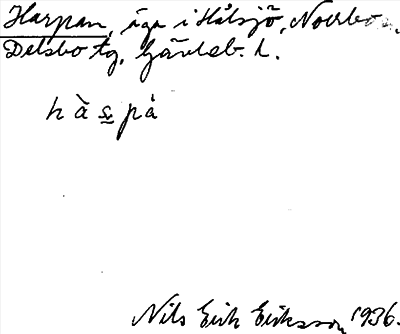 Harpan, äga i Hålsjö, Norrbo s.
Delsbo tg, Gävleb. l.
hàs̰pȧ
Nils Erik Eriksson 1936.